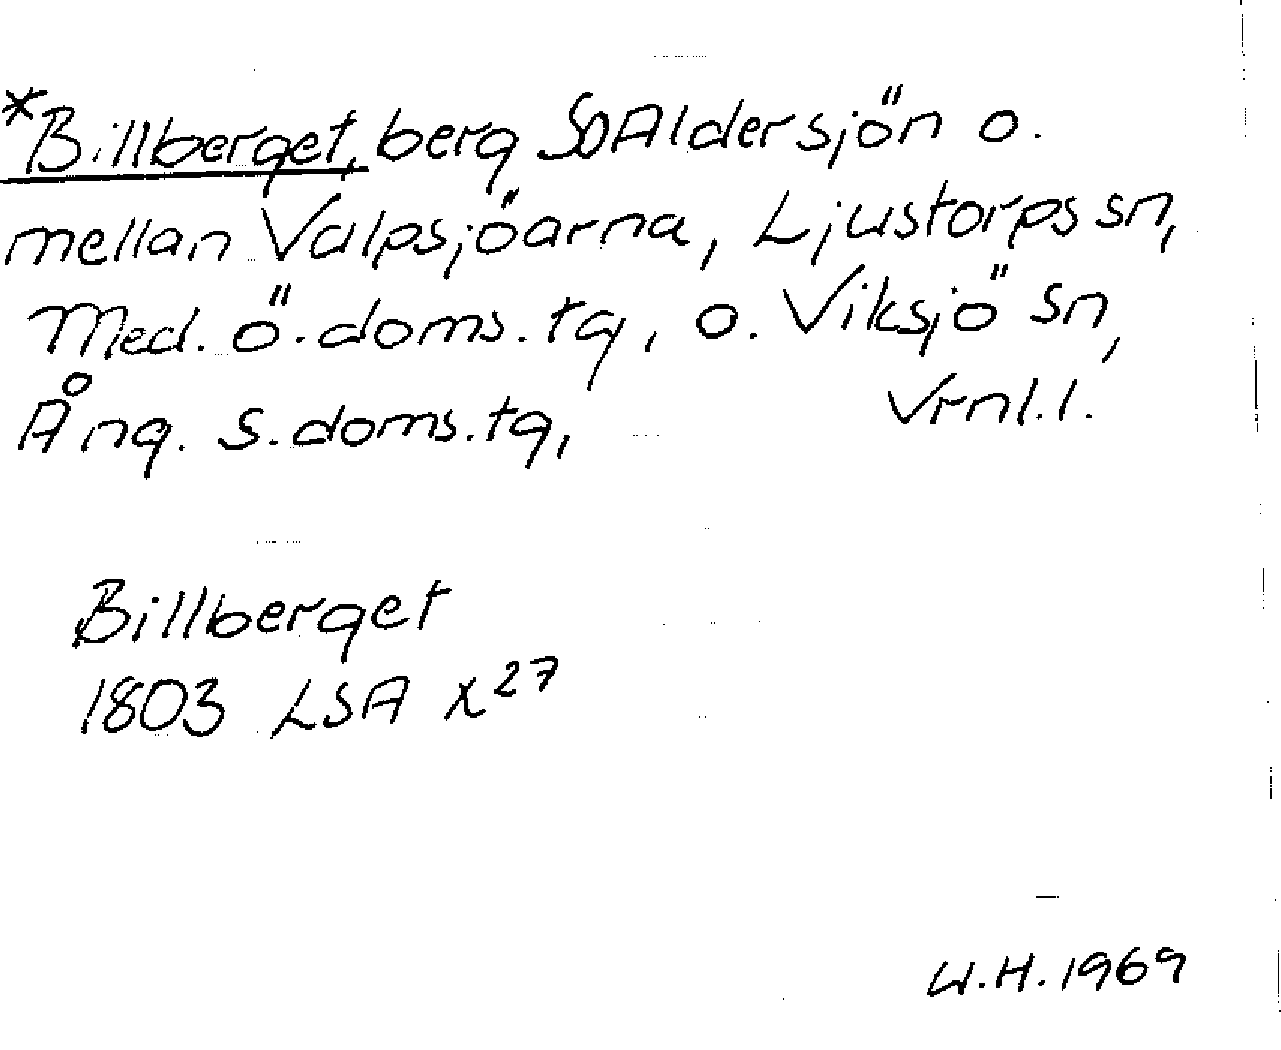 *Billberget, berg SO Aldersjön o.
mellan Valpsjöarna, Ljustorps sn,
Med. ö. doms. tg, o. Viksjö sn,
Ång. s. doms. tg, Vrnl. l.
Billberget
1803 LSA X27
W.H. 1969